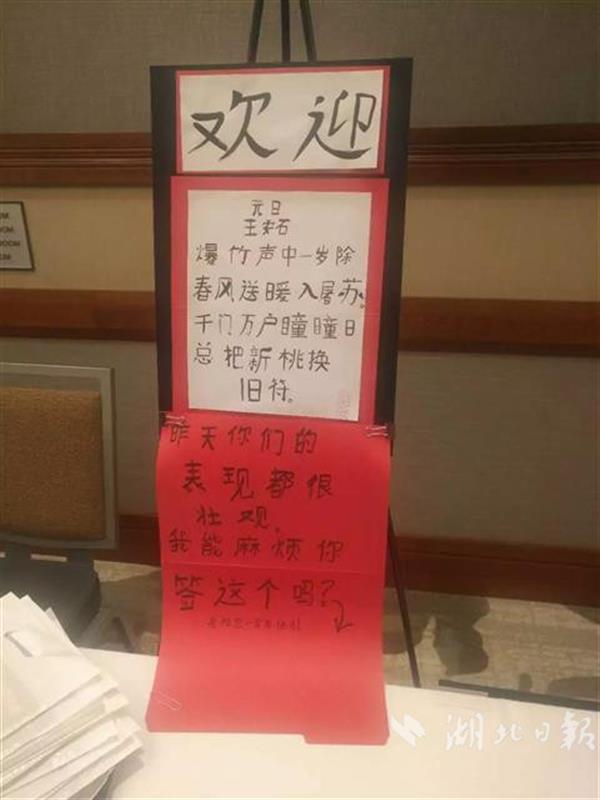 欢迎
元日
王安石
爆竹声中一岁除
春风送暖入屠苏。
千门万户瞳瞳日
总把新桃换
旧符。
昨天你们的
表现都很
壮观。
我能麻烦你
签这个吗?
OM
OM
ROOM
湖北日報